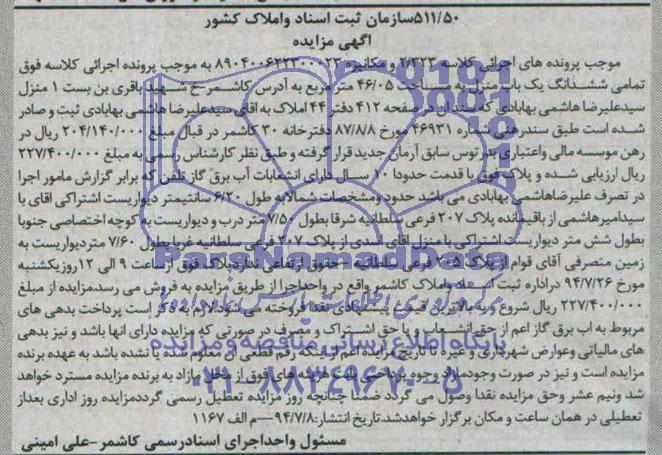 ۵۱۱/۵۰سازمان ثبت اسناد واملاک کشور
آگهی مزایده
موجب پرونده های اجرائی کلاسه ۲/۳۲۳ و مکانیزه ۸۹۰۴۰۰۶۲۲۳۰۰۰۲۳ به موجب پرونده اجرائی کلاسه فوق
تمامی ششدانگ یک باب منزل به مساحت ۴۶/۰۵ متر مربع به آدرس کاشمر-خ شهید باقری بن بست ۱ منزل
سیدعلیرضا هاشمی بهابادی که سند آن در صفحه ۴۱۲ دفتر ۴۴ املاک به اقای سیدعلیرضا هاشمی بهابادی ثبت و صادر
شده است طبق سندرهنی شماره ۴۶۹۳۱ مورخ ۸۷/۸/۸ دفترخانه ۳۰ کاشمر در قبال مبلغ ۲۰۴/۱۴۰/۰۰۰ ریال در
رهن موسسه مالی واعتباری بدرتوس سابق آرمان جدید قرار گرفته و طبق نظر کارشناس رسمی به مبلغ ۲۲۷/۴۰۰/۰۰۰
ریال ارزیابی شده و پلاک فوق با قدمت حدودا ۱۰ سال دارای انشعابات آب برق گاز تلفن که برابر گزارش مامور اجرا
در تصرف علیرضاهاشمی بهابادی می باشد حدود ومشخصات شمالابه طول ۶/۲۰ سانتیمتر دیواریست اشتراکی اقای با
سیدامیرهاشمی از باقیمانده پلاک ۲۰۷ فرعی سلطانیه شرقا بطول ۷/۵۰ متر درب و دیواریست به کوچه اختصاصی جنوبا
بطول شش متر دیواریست اشتراکی با منزل اقای اسدی از پلاک ۲۰۷ فرعی سلطانیه غربا بطول ۷/۶۰ متردیواریست به
زمین متصرفی آقای قوام از پلاک ۲۰۵ فرعی سلطانیه - حقوق ارتفاعی نداردپلاک فوق ازساعت ۹ الی ۱۲روزیکشنبه
مورخ ۹۴/۷/۲۶ دراداره ثبت اسناد واملاک کاشمر واقع در واحداجرا از طریق مزایده به فروش می رسد.مزایده از مبلغ
۲۲۷/۴۰۰/۰۰۰ ریال شروع و به بالاترین قیمت پیشنهادی نقدا فروخته می شود.لازم به ذکر است پرداخت بدهی های
مربوط به اب برق گاز اعم از حق انشعاب و یا حق اشتراک و مصرف در صورتی که مزایده دارای انها باشد و نیز بدهی
های مالیاتی وعوارض شهرداری و غیره تا تاریخ مزایده اعم از اینکه رقم قطعی ان معلوم شده یا نشده باشد به عهده برنده
مزایده است و نیز در صورت وجودمازاد وجوه پرداختی بابت هزینه های فوق از محل مازاد به برنده مزایده مسترد خواهد
شد ونیم عشر وحق مزایده نقدا وصول می گردد ضمنا چنانچه روز مزایده تعطیل رسمی گرددمزایده روز اداری بعداز
تعطیلی در همان ساعت و مکان برگزار خواهدشد.تاریخ انتشار:۹۴/۷/۸—م الف ۱۱۶۷
مسئول واحداجرای اسنادرسمی کاشمر-علی امینی
ParsNamadData
پایگاه اطلاع رسانی مناقصه و مزایده
۰۲۱-۸۸۳۴۹۶۷۰-۵